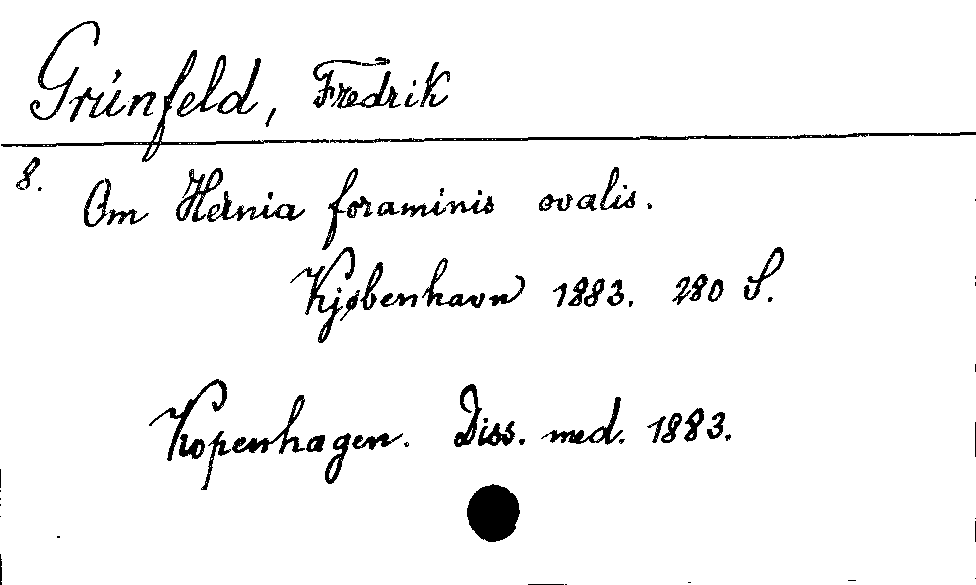 Grünfeld, Fredrik
8.
Om Hernia foraminis ovalis.
Kjøbenhavn 1883. 280 S.
Kopenhagen. Diss. med. 1883.